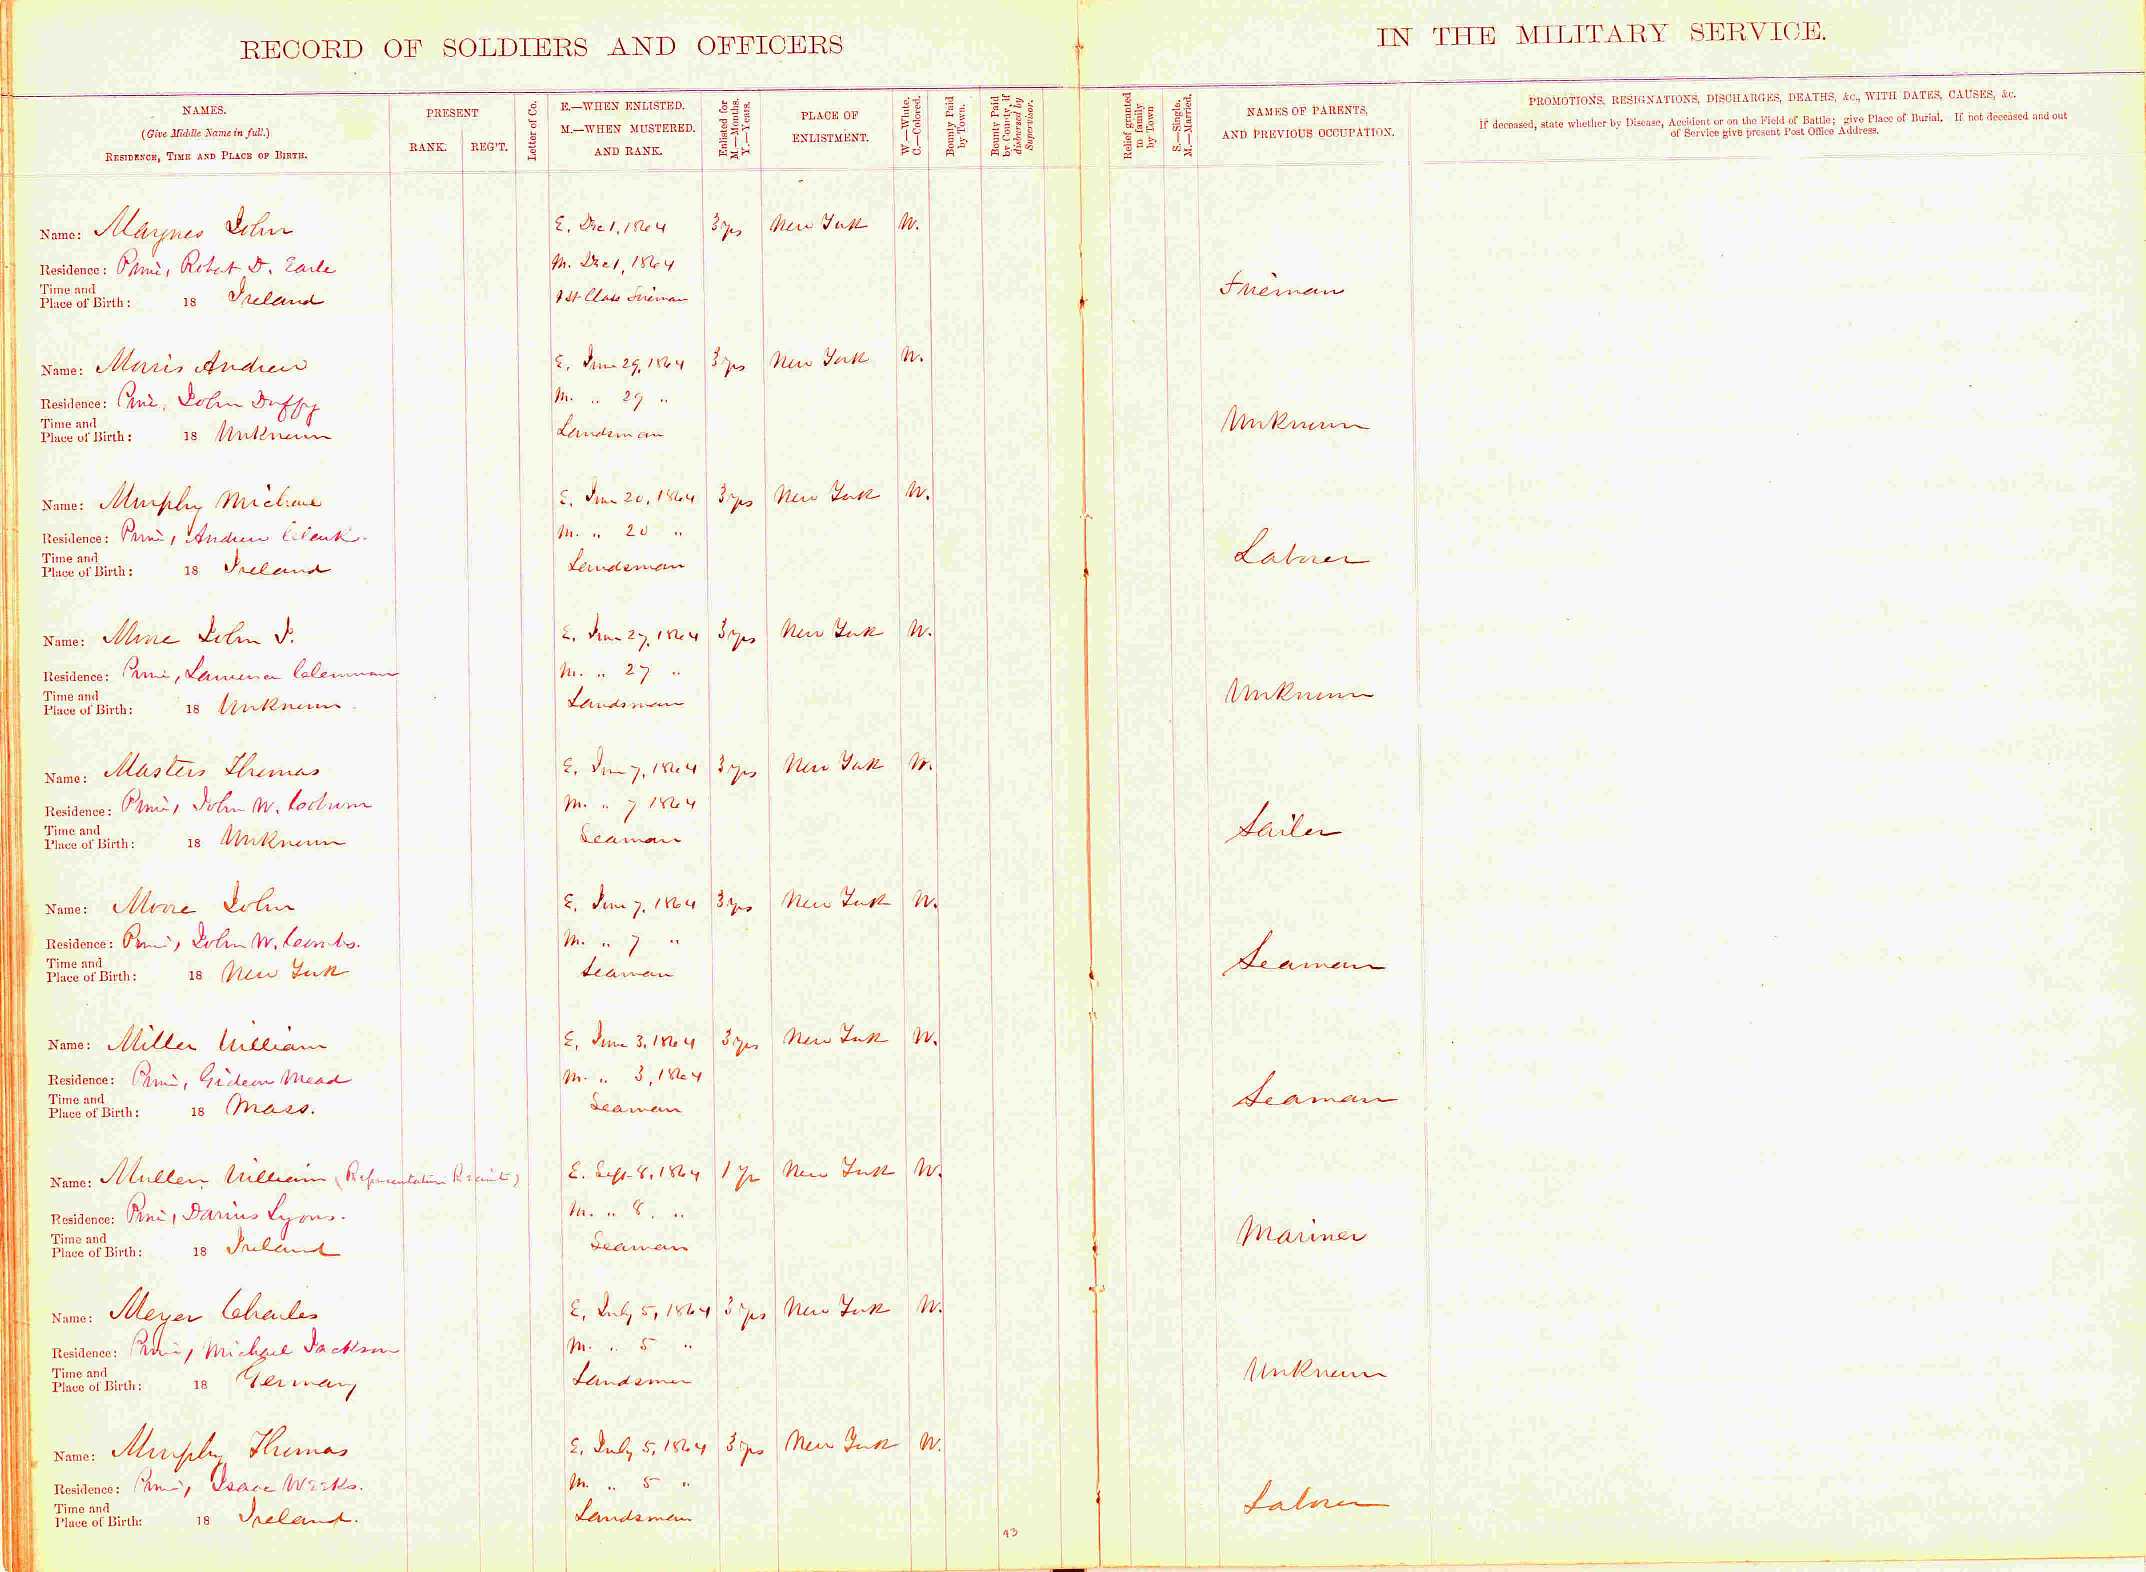 RECORD OF SOLDIERS AND OFFICERS IN THE MILITARY SERVICE.
NAMES.
(Give Middle Name in full.)
RESIDENCE, TIME AND PLACE OF BIRTH.
PRESENT
RANK. REG'T.
Letter of Co.
E.—WHEN ENLISTED.
M.—WHEN MUSTERED.
AND RANK.
Enlisted for
M.—Months.
Y.—Years.
PLACE OF
ENLISTMENT.
W.—White.
C.—Colored.
Bounty Paid
by Town.
Bounty Paid
by County, if
disbursed by
Supervisor.
Relief granted
to family
by Town
S.—Single.
M.—Married.
NAMES OF PARENTS,
AND PREVIOUS OCCUPATION.
PROMOTIONS, RESIGNATIONS, DISCHARGES, DEATHS, &c., WITH DATES, CAUSES, &c.
If deceased, state whether by Disease, Accident or on the Field of Battle; give Place of Burial. If not deceased and out
of Service give present Post Office Address.
Name: John E. Dec 1, 1864 3 yrs New York W.
Residence: Prin, Robert D. Earle M. Dec 1, 1864
Time and
Place of Birth: 18 Ireland 1st Class Fireman Fireman
Name: Morris Andrew E. June 29, 1864 3 yrs New York W.
Residence: Prin, John Duffy M. " 29 "
Time and
Place of Birth: 18 Unknown Landsman Unknown
Name: Murphy Michael E. June 20, 1864 3 yrs New York W.
Residence: Prin, Andrew Clark. M. " 20 "
Time and
Place of Birth: 18 Ireland Landsman Laborer
Name: Moore John E. June 27, 1864 3 yrs New York W.
Residence: Prin, Lawrence M. " 27 "
Time and
Place of Birth: 18 Unknown Landsman Unknown
Name: Masters Thomas E. June 7, 1864 3 yrs New York W.
Residence: Prin, John W. M. " 7 1864
Time and
Place of Birth: 18 Unknown Seaman Sailor
Name: Moore John E. June 7, 1864 3 yrs New York W.
Residence: Prin, John W. Coombs. M. " 7 "
Time and
Place of Birth: 18 New York Seaman Seaman
Name: Miller William E. June 3, 1864 3 yrs New York W.
Residence: Prin, Gideon Mead M. " 3, 1864
Time and
Place of Birth: 18 Mass. Seaman Seaman
Name: Mullen William (Representative Recruit) E. Sept. 8, 1864 1 yr New York W.
Residence: Prin, Darius Lyons. M. " 8. "
Time and
Place of Birth: 18 Ireland Seaman Mariner
Name: Meyer Charles E. July 5, 1864 3 yrs New York W.
Residence: Prin, Michael Jackson M. " 5 "
Time and
Place of Birth: 18 Germany Landsmen Unknown
Name: Murphy Thomas E. July 5, 1864 3 yrs New York W.
Residence: Prin, Isaac Weeks. M. " 5 "
Time and
Place of Birth: 18 Ireland. Landsman Laborer
93